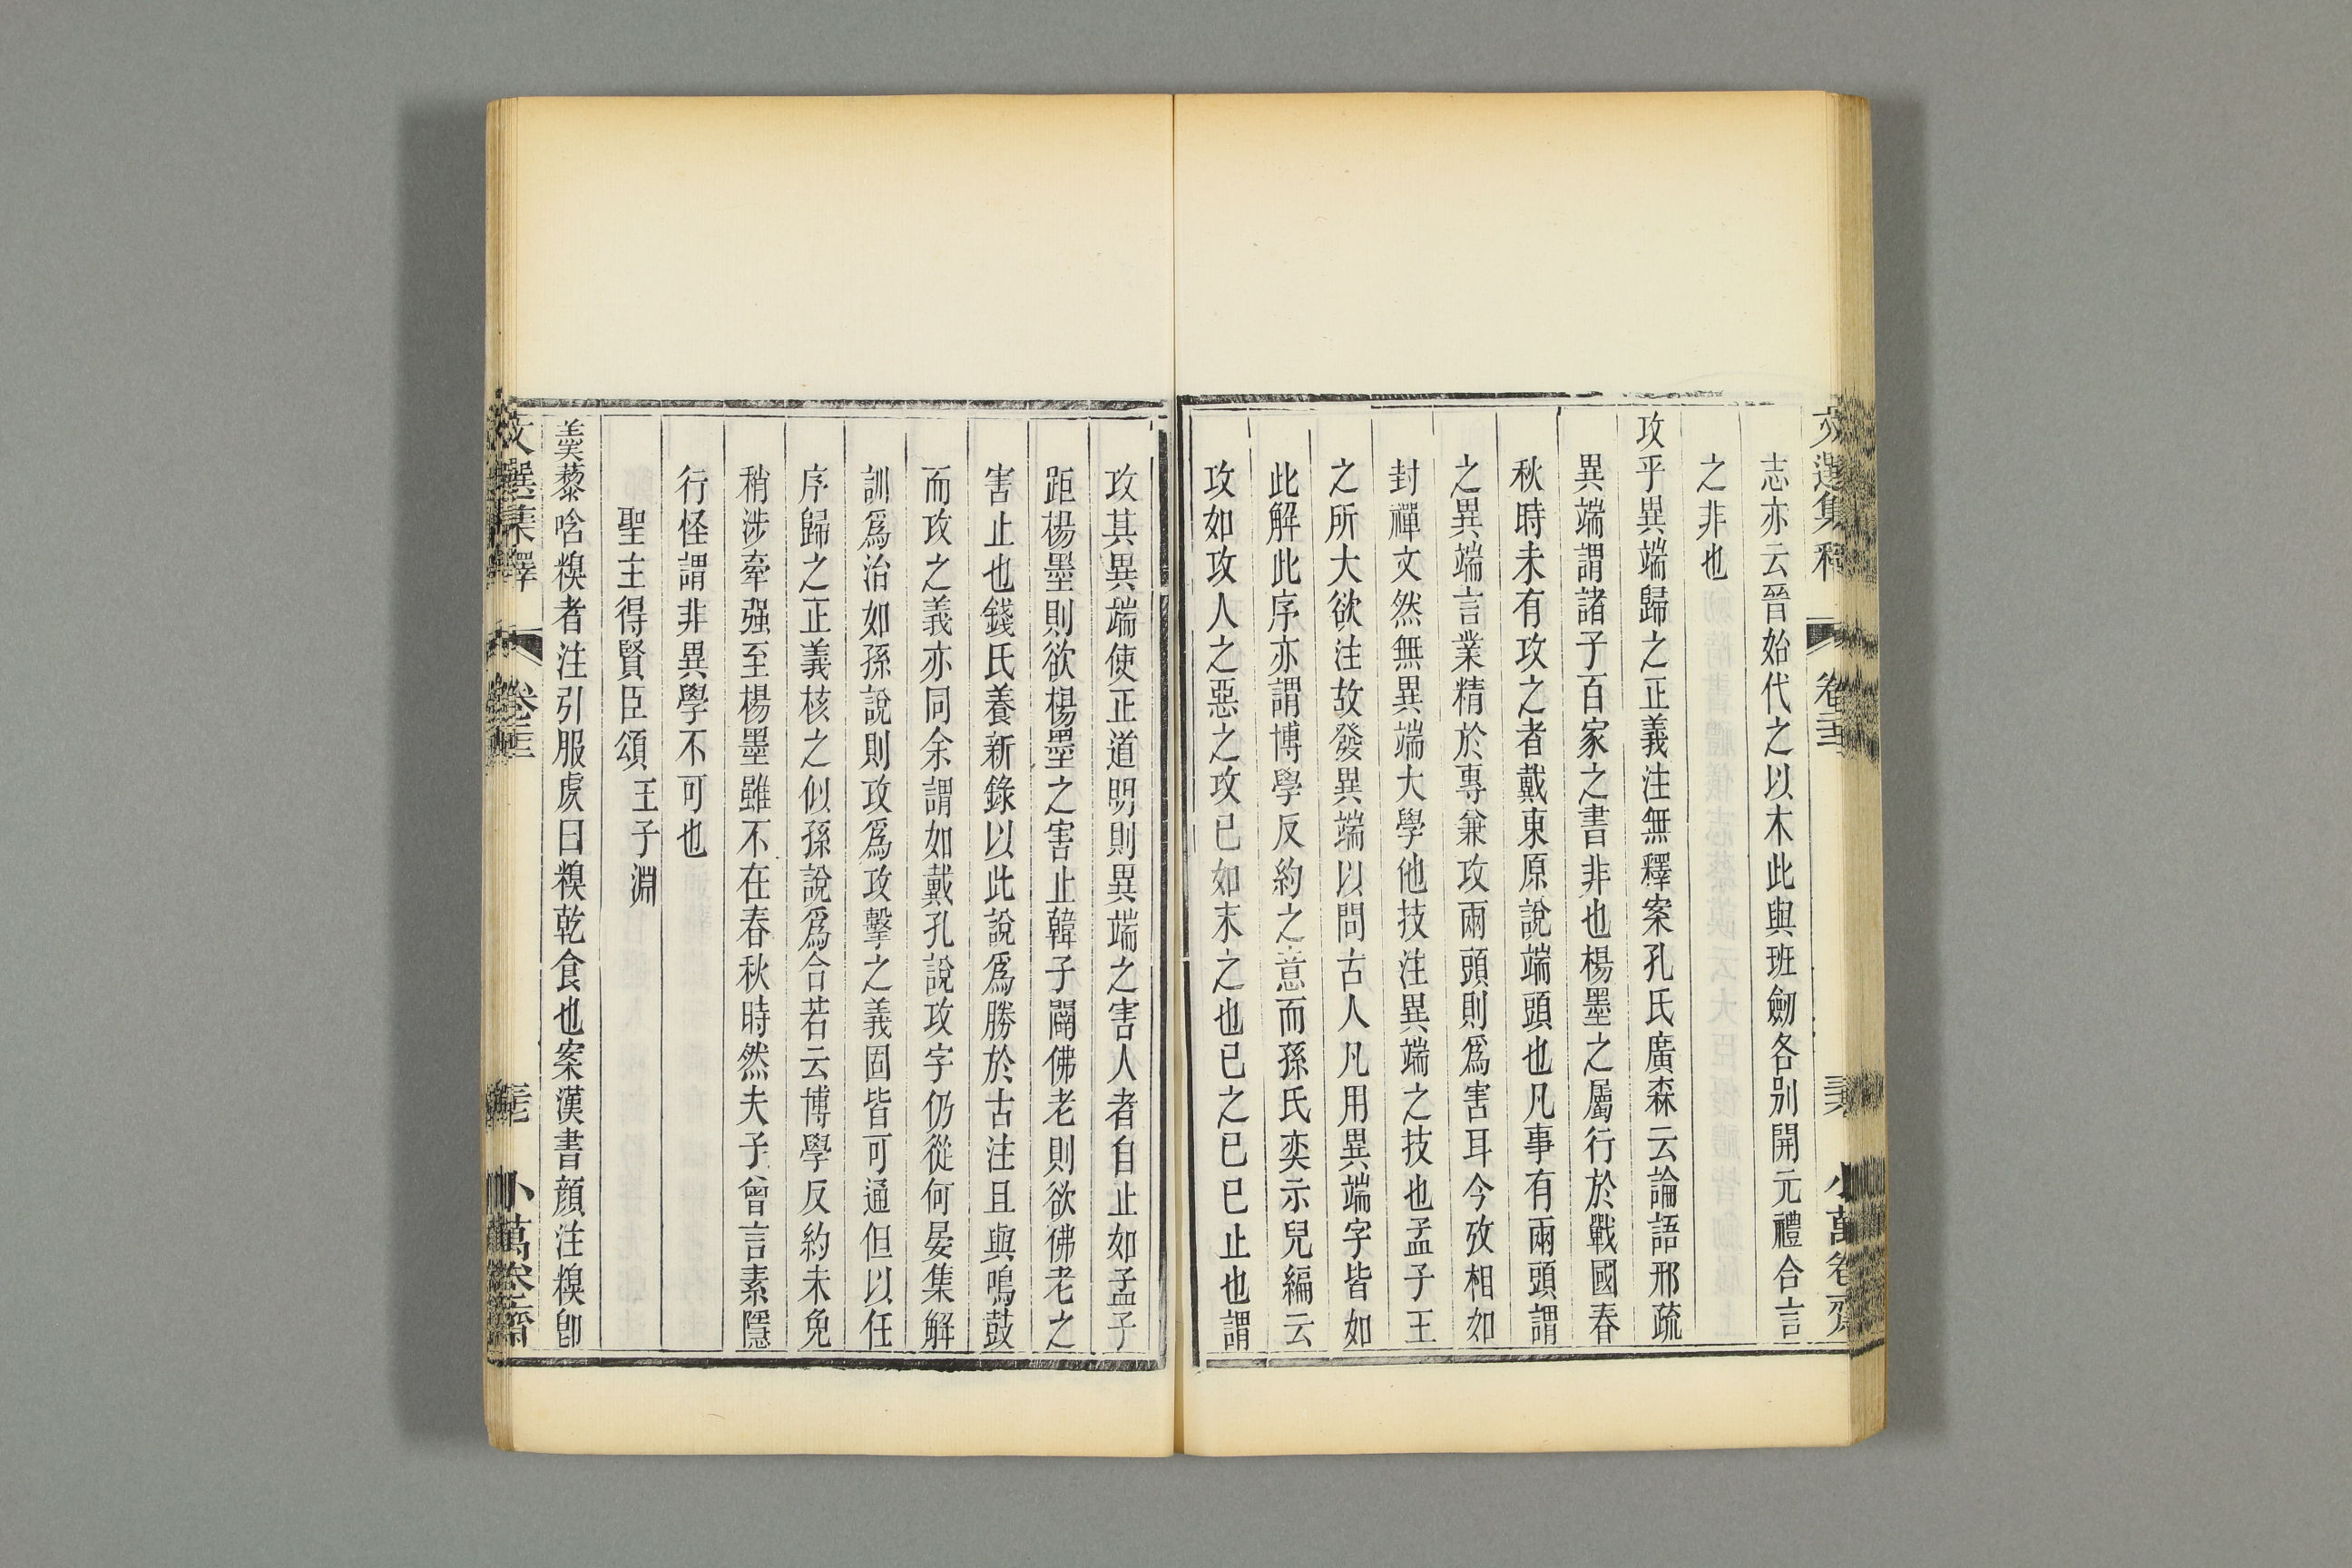 文選集釋 卷二十三 小萬卷齋
志亦云晉始代之以木此與班劒各别開元禮合言
之非也
攻乎異端歸之正義注無釋案孔氏廣森云論語邢疏
異端謂諸子百家之書非也楊墨之屬行於戰國春
秋時未有攻之者戴東原說端頭也凡事有兩頭謂
之異端言業精於專兼攻兩頭則爲害耳今攷相如
封禪文然無異端大學他技注異端之技也孟子王
之所大欲注故發異端以問古人凡用異端字皆如
此解此序亦謂博學反約之意而孫氏奕示兒編云
攻如攻人之惡之攻已如末之也已之已已止也謂
攻其異端使正道明則異端之害人者自止如孟子
距楊墨則欲楊墨之害止韓子闢佛老則欲佛老之
害止也錢氏養新錄以此說爲勝於古注且與鳴鼓
而攻之義亦同余謂如戴孔說攻字仍從何晏集解
訓爲治如孫說則攻爲攻擊之義固皆可通但以任
序歸之正義核之似孫說爲合若云博學反約未免
稍涉牽强至楊墨雖不在春秋時然夫子曾言素隱
行怪謂非異學不可也
聖主得賢臣頌 王子淵
羹藜唅糗者注引服虔曰糗乾食也案漢書顏注糗卽
文選集釋 卷二十三 小萬卷齋